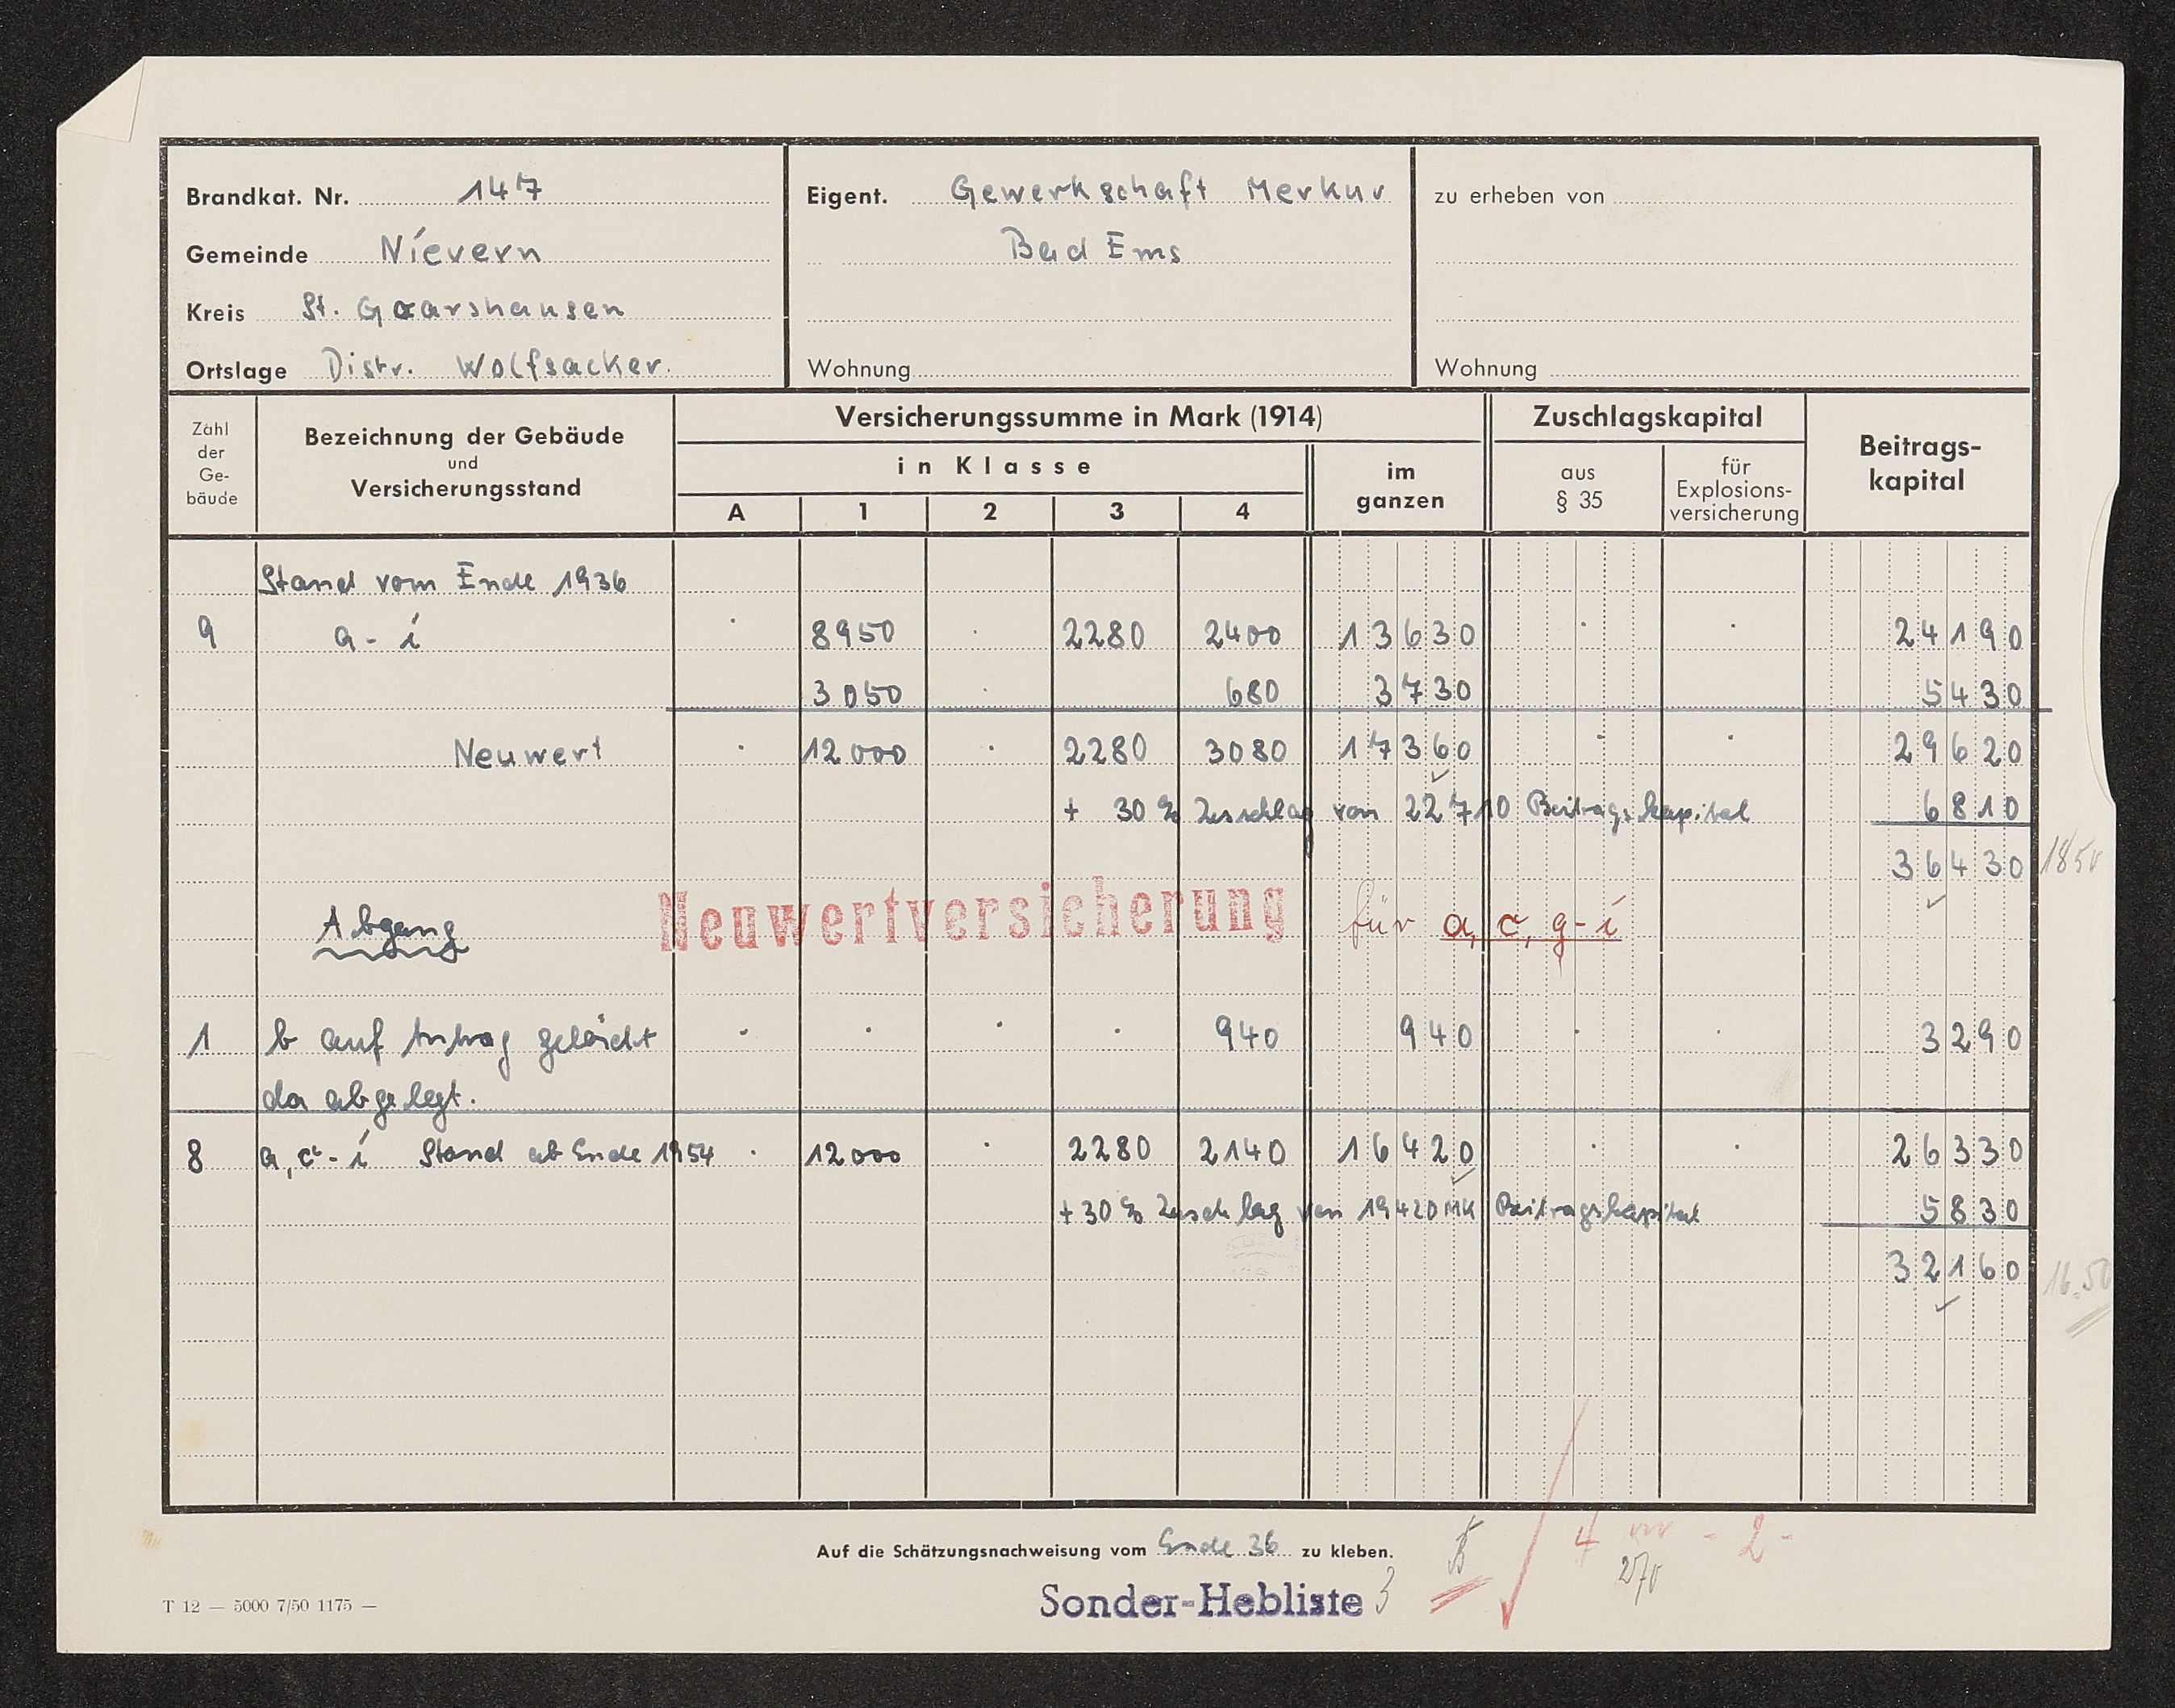 Brandkat. Nr. 147
Gemeinde Nievern
Kreis St. Goarshausen
Ortslage Distr. Wolfsacker.
Eigent. Gewerkschaft Merkur
Bad Ems
Wohnung
zu erheben von
Wohnung
Zahl der Ge- bäude
Bezeichnung der Gebäude und Versicherungsstand
Versicherungssumme in Mark (1914)
in Klasse
A 1 2 3 4
im ganzen
Zuschlagskapital
aus § 35
für Explosions- versicherung
Beitrags- kapital
Stand vom Ende 1936
9 a - i · 8950 · 2280 2400 13630 · · 24190
3050 · 680 3730 5430
Neuwert · 12000 · 2280 3080 17360 · · 29620
+ 30 % Zuschlag von 22710 Beitragskapital 6810
36430
Abgang
Neuwertversicherung für a, c, g - i
1 b auf Antrag gelöscht · · · · 940 940 · · 3290
da abgelegt.
8 a, c - i Stand ab Ende 1954 · 12000 · 2280 2140 16420 · · 26330
+ 30 % Zuschlag von 19420 MK Beitragskapital 5830
32160 16.50
Auf die Schätzungsnachweisung vom Ende 36 zu kleben.
Sonder-Hebliste 3
T 12 — 5000 7/50 1175 —